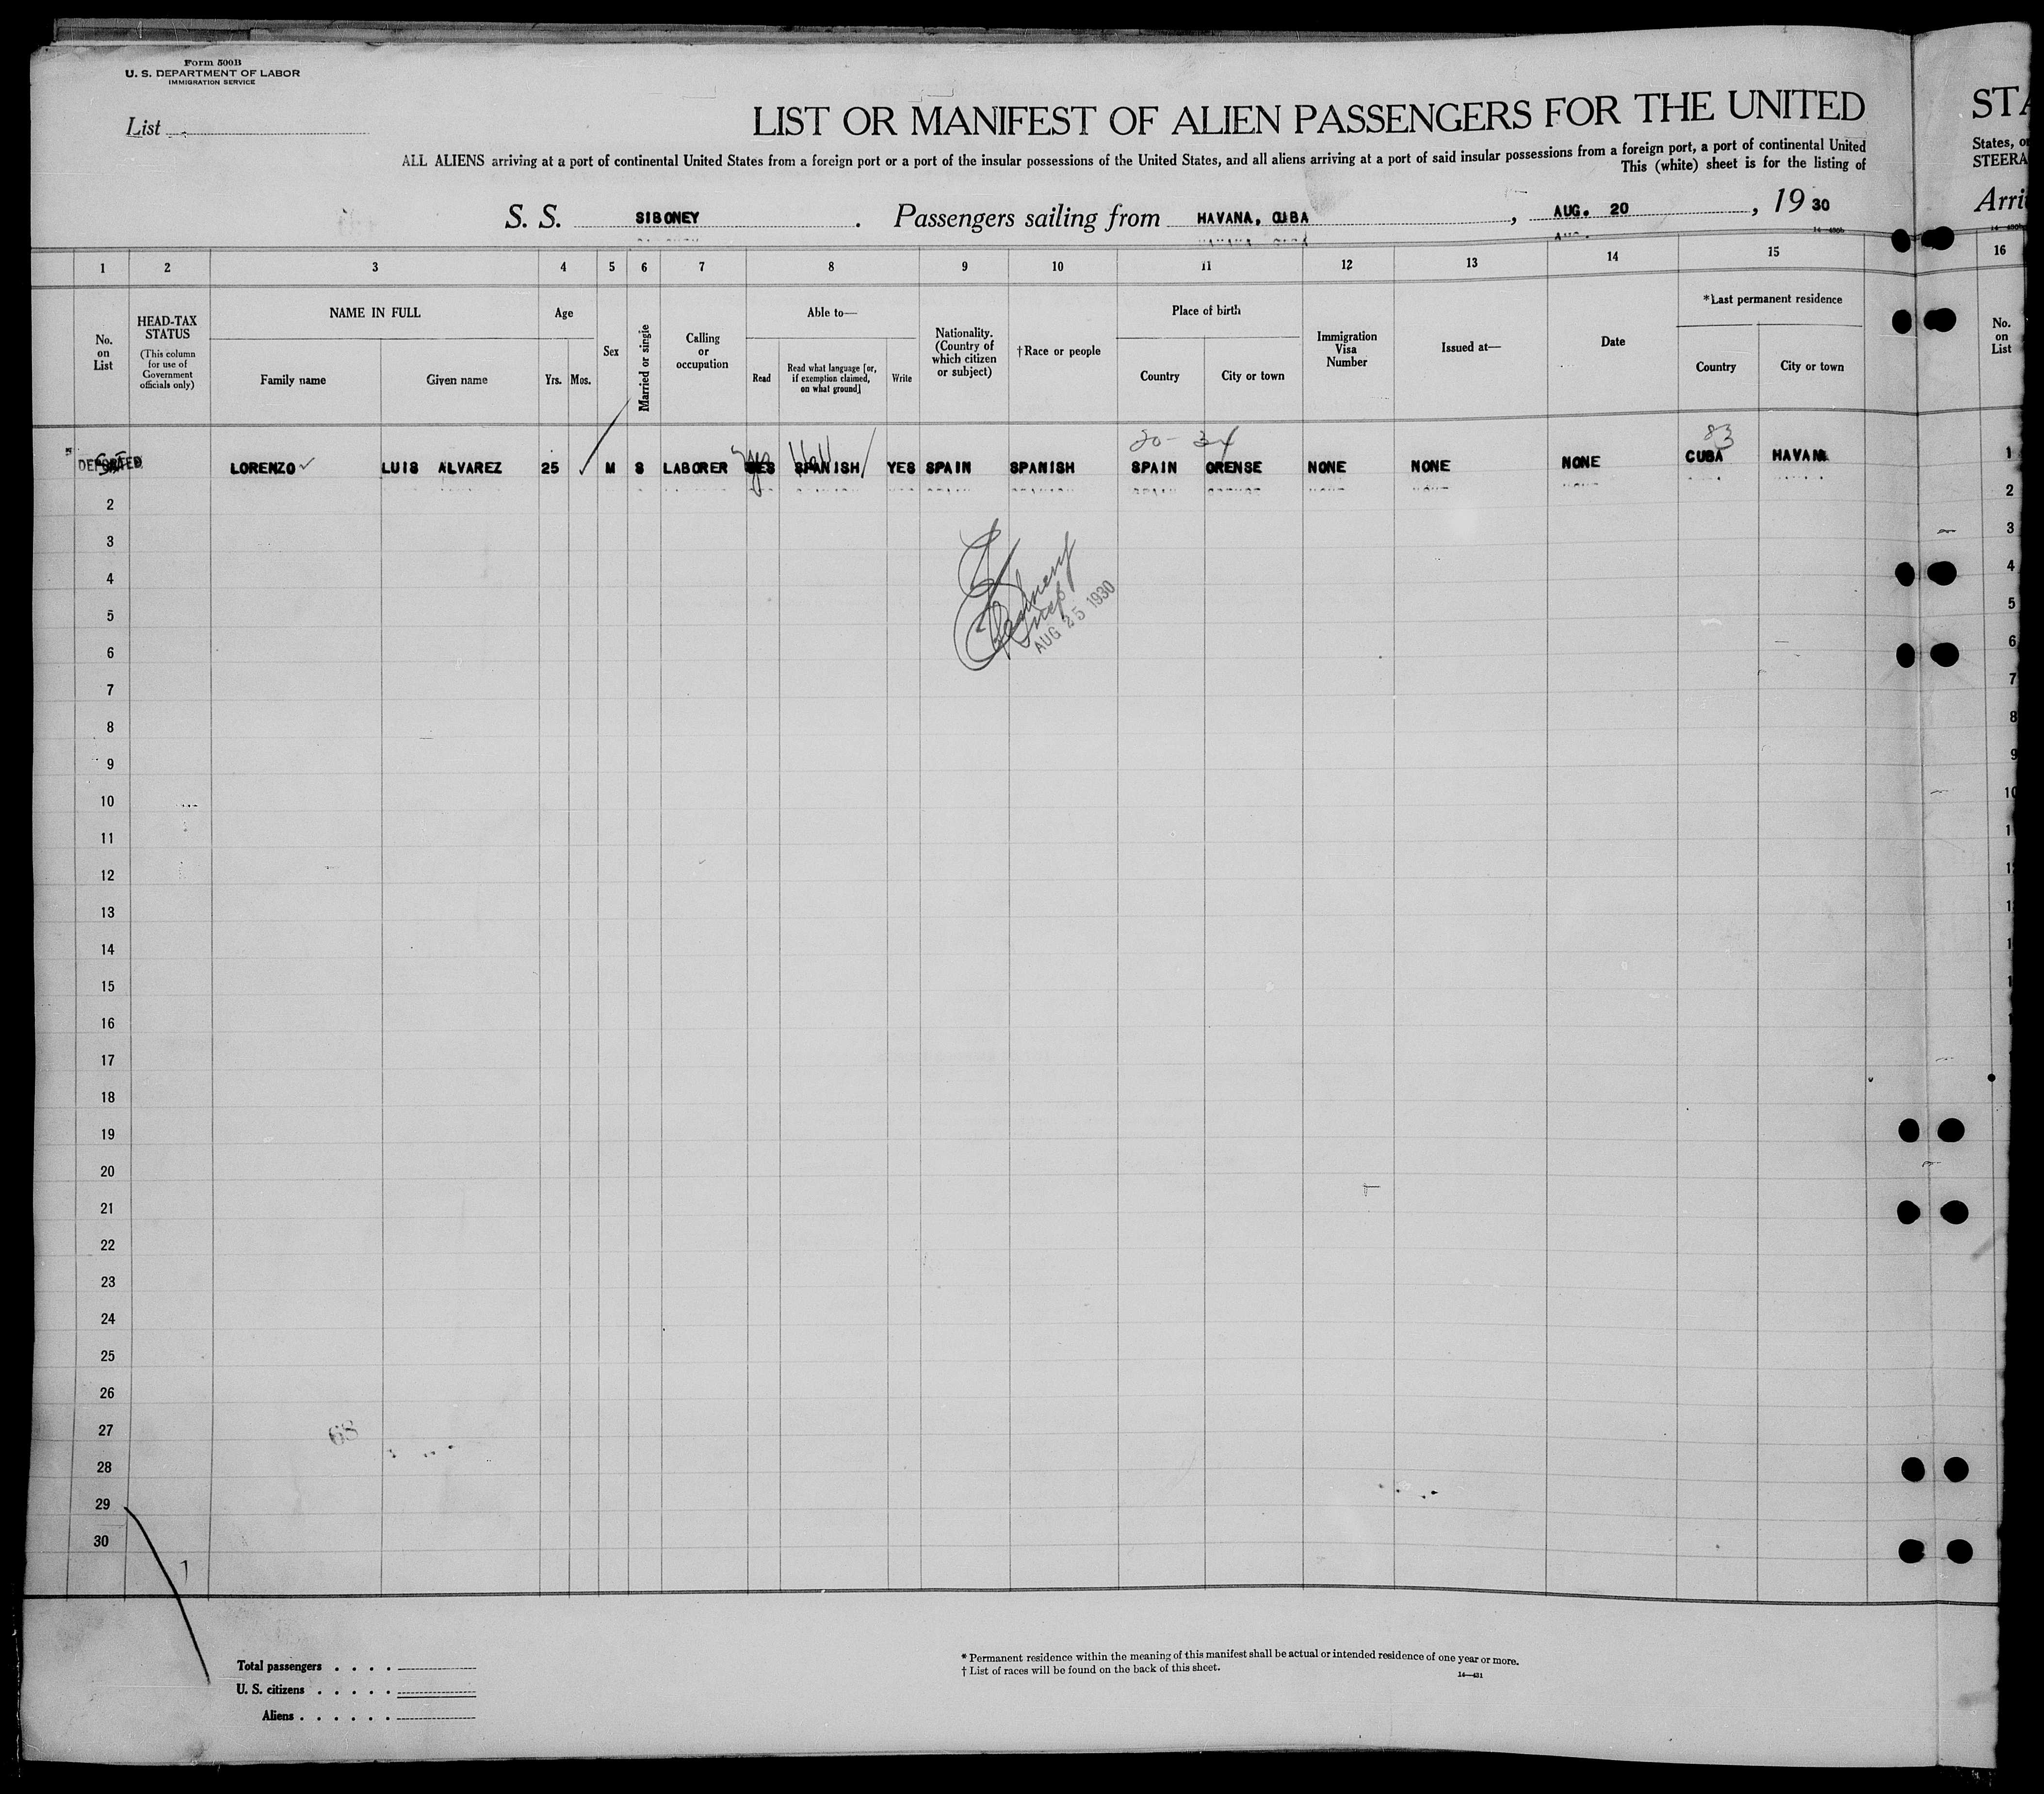 Form 500B
U. S. DEPARTMENT OF LABOR
IMMIGRATION SERVICE
List
LIST OR MANIFEST OF ALIEN PASSENGERS FOR THE UNITED
STA
ALL ALIENS arriving at a port of continental United States from a foreign port or a port of the insular possessions of the United States, and all aliens arriving at a port of said insular possessions from a foreign port, a port of continental United
States, or
This (white) sheet is for the listing of
STEERA
S. S. SIBONEY . Passengers sailing from HAVANA, CUBA , AUG. 20 , 19 30
Arri
14—430b
1 2 3 4 5 6 7 8 9 10 11 12 13 14 15 16
No. on List
HEAD-TAX STATUS (This column for use of Government officials only)
NAME IN FULL
Family name Given name
Age
Yrs. Mos.
Sex
Married or single
Calling or occupation
Able to—
Read
Read what language [or, if exemption claimed, on what ground]
Write
Nationality. (Country of which citizen or subject)
†Race or people
Place of birth
Country City or town
Immigration Visa Number
Issued at—
Date
*Last permanent residence
Country City or town
No. on List
20- 34 83
DEPORTED LORENZO ✓ LUIS ALVAREZ 25 ✓ M S LABORER YES yes SPANISH YES SPAIN SPANISH SPAIN ORENSE NONE NONE NONE CUBA HAVANA 1
2 2
3 3
4 4
5 5
6 6
7 7
8 8
9 9
10 10
11 1
12 1
13 1
14 1
15 1
16 1
17
18
19
20
21
22
23
24
25
26
27
28
29
30
AUG 25 1930
68
Total passengers . . . .
U. S. citizens . . . . .
Aliens . . . . . .
* Permanent residence within the meaning of this manifest shall be actual or intended residence of one year or more.
† List of races will be found on the back of this sheet.
14—431